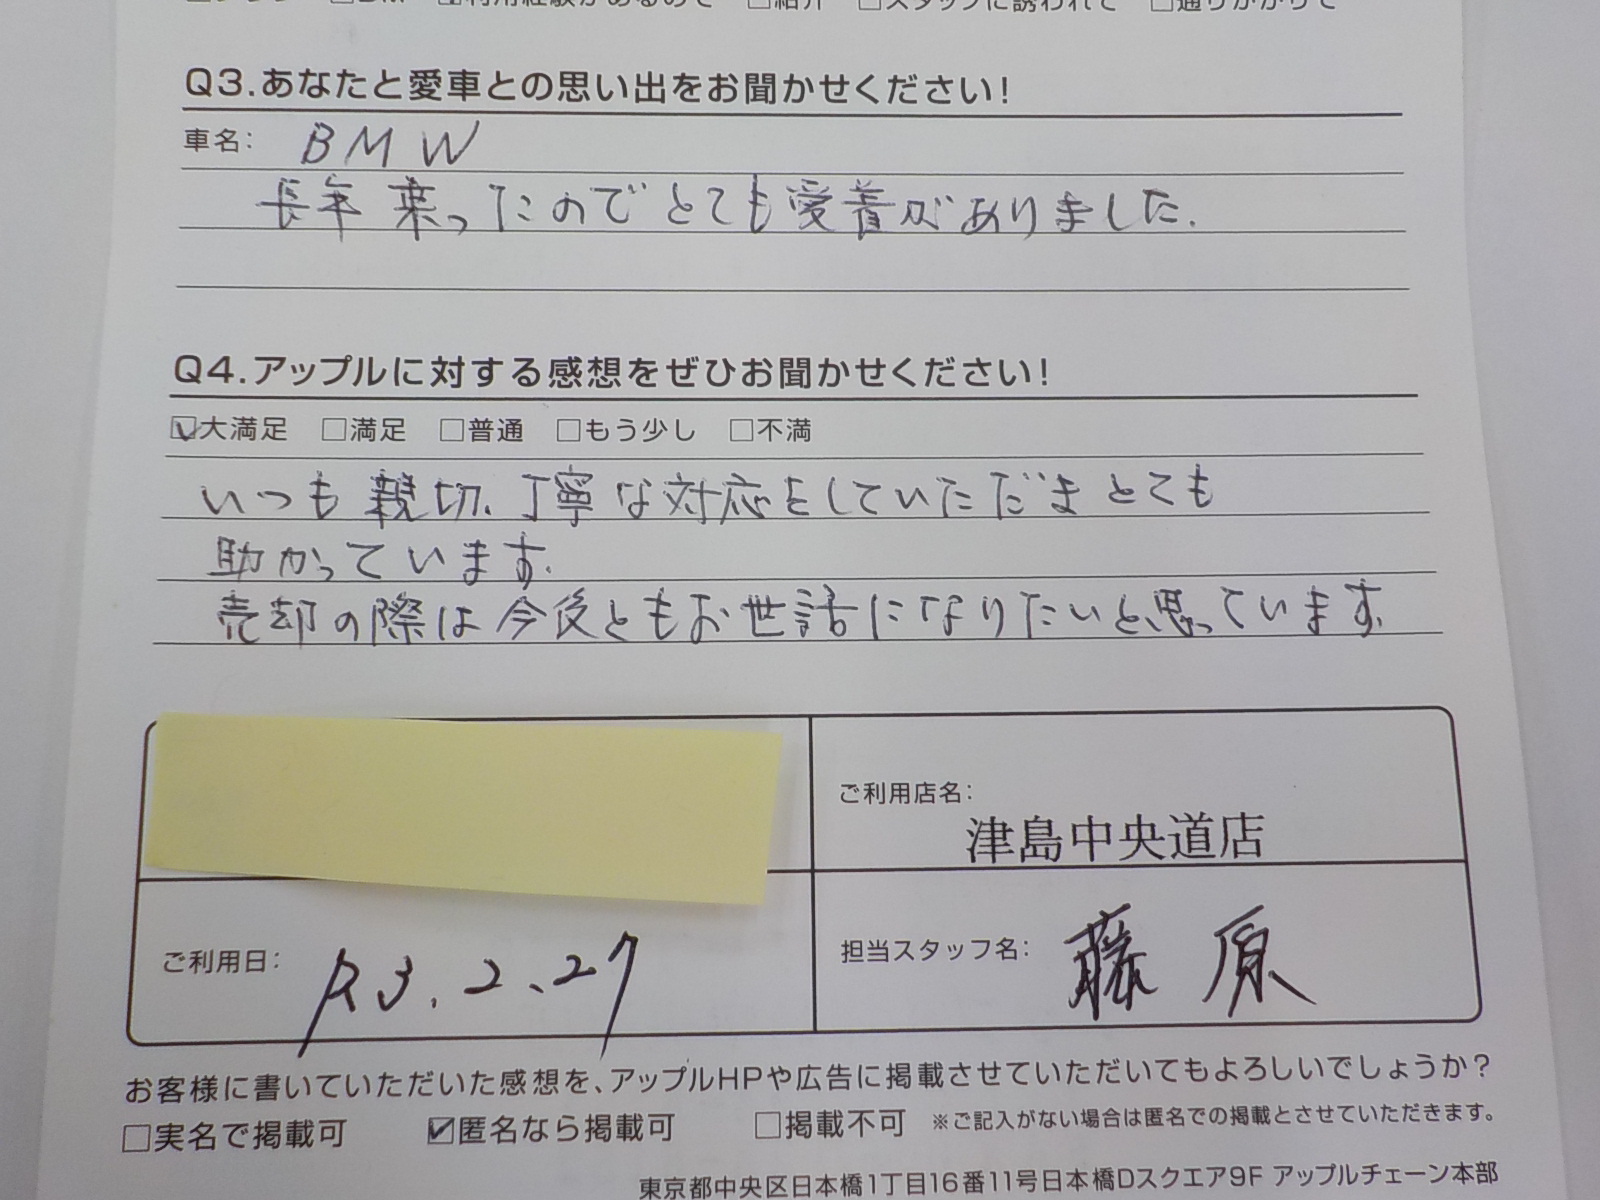 利用経験があるので □紹介 □スタッフに誘われて □通りがかりで
Q3.あなたと愛車との思い出をお聞かせください!
車名: BMW
長年乗ったのでとても愛着がありました.
Q4.アップルに対する感想をぜひお聞かせください!
☑大満足 □満足 □普通 □もう少し □不満
いつも親切、丁寧な対応をしていただきとても
助かっています.
売却の際は今後ともお世話になりたいと思っています.
ご利用店名:
津島中央道店
ご利用日: R3.2.27
担当スタッフ名: 藤原
お客様に書いていただいた感想を、アップルHPや広告に掲載させていただいてもよろしいでしょうか?
□実名で掲載可 ☑匿名なら掲載可 □掲載不可 ※ご記入がない場合は匿名での掲載とさせていただきます。
東京都中央区日本橋1丁目16番11号日本橋Dスクエア9F アップルチェーン本部